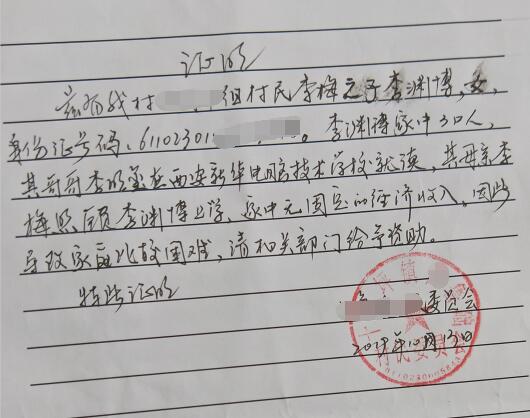 证明
兹有我村 组村民李梅之子李渊博，女，
身份证号码：61102301 。李渊博家中3口人，
其哥哥李明 在西安新华电脑技术学校就读，其母亲李
梅照顾李渊博上学，家中无固定的经济收入，因此
导致家庭比较困难，请相关部门给予资助。
特此证明
委员会
年10月13日
村民委员会